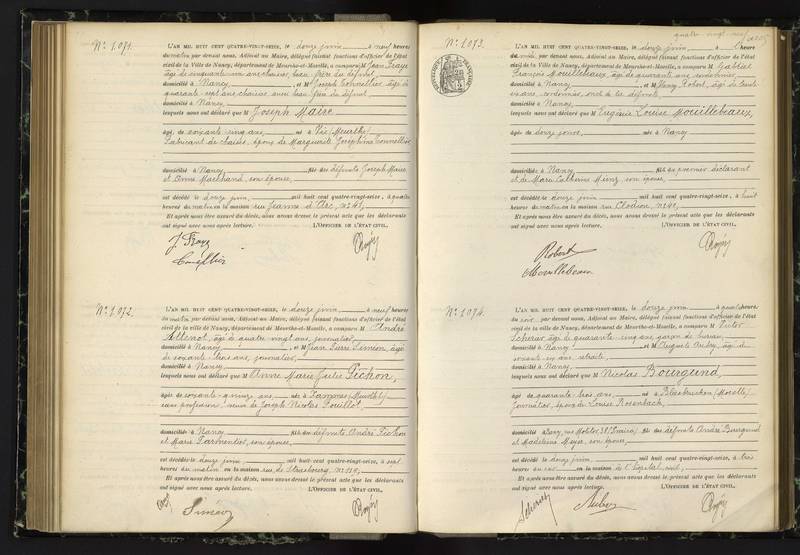 N° 1.071.
L'AN MIL HUIT CENT QUATRE-VINGT-SEIZE, le douze juin à neuf heures
du matin par devant nous, Adjoint au Maire, délégué faisant fonctions d'officier de l'état
civil de la Ville de Nancy, département de Meurthe-et-Moselle, a comparu M Jean Fray
âgé de cinquante un ans chaisier, beau-frère du défunt
domicilié à Nancy et M Joseph Tonnellier âgé de
quarante-sept ans chaisier aussi beau-frère du défunt
domicilié à Nancy
lesquels nous ont déclaré que M Joseph Maire
âgé de soixante cinq ans né à Vic (Meurthe)
fabricant de chaises, époux de Marguerite Joséphine Tonnellier
domicilié à Nancy fils des défunts Joseph Maire
et Anne Marchand, son épouse
est décédé le douze juin mil huit cent quatre-vingt-seize, à quatre
heures du matin en la maison rue Jeanne d'Arc, n° 41,
Et après nous être assuré du décès, nous avons dressé le présent acte que les déclarants
ont signé avec nous après lecture. L'OFFICIER DE L'ÉTAT CIVIL,
J. Fray
N° 1.072.
L'AN MIL HUIT CENT QUATRE-VINGT-SEIZE, le douze juin à neuf heures
du matin par devant nous, Adjoint au Maire, délégué faisant fonctions d'officier de l'état
civil de la Ville de Nancy, département de Meurthe-et-Moselle, a comparu M André
âgé de quatre vingt ans, journalier,
domicilié à Nancy et M Jean Pierre Siméon, âgé
de soixante trois ans, journalier,
domicilié à Nancy
lesquels nous ont déclaré que M Anne Marie Julie Pichon,
âgée de soixante-quinze ans née à (Meurthe)
sans profession, veuve de Joseph Nicolas Pouillot,
domiciliée à Nancy fille des défunts André Pichon
et Marie Parmentier, son épouse,
est décédée le douze juin mil huit cent quatre-vingt-seize, à sept
heures du matin en la maison rue de Strasbourg, n° 119,
Et après nous être assuré du décès, nous avons dressé le présent acte que les déclarants
ont signé avec nous après lecture. L'OFFICIER DE L'ÉTAT CIVIL,
Siméon
quatre vingt
N° 1.073.
L'AN MIL HUIT CENT QUATRE-VINGT-SEIZE, le douze juin à heures
du par devant nous, Adjoint au Maire, délégué faisant fonctions d'officier de l'état
civil de la Ville de Nancy, département de Meurthe-et-Moselle, a comparu M Gabriel
François Mouillebeaux, âgé de quarante ans, cordonnier,
domicilié à Nancy et M Robert, âgé de trente
ans, cordonnier, oncle de la défunte
domicilié à Nancy
lesquels nous ont déclaré que M Eugénie Louise Mouillebeaux,
âgée de douze jours née à Nancy
domiciliée à Nancy fille du premier déclarant
et de Marie Catherine Minz, son épouse,
est décédée le douze juin mil huit cent quatre-vingt-seize, à huit
heures du matin en la maison rue Clodion, n° 40,
Et après nous être assuré du décès, nous avons dressé le présent acte que les déclarants
ont signé avec nous après lecture. L'OFFICIER DE L'ÉTAT CIVIL,
Robert
Mouillebeaux
N° 1.074.
L'AN MIL HUIT CENT QUATRE-VINGT-SEIZE, le douze juin à quatre heures
du soir par devant nous, Adjoint au Maire, délégué faisant fonctions d'officier de l'état
civil de la Ville de Nancy, département de Meurthe-et-Moselle, a comparu M Victor
Scherrer âgé de quarante cinq ans, garçon de bureau
domicilié à Nancy et M Auguste Aubry, âgé de
soixante un ans, retraité,
domicilié à Nancy
lesquels nous ont déclaré que M Nicolas Bourgund
âgé de quarante-trois ans né à (Moselle)
journalier, époux de Louise Rosenbach,
domicilié à fils des défunts André Bourgund
et Madeleine Meyer, son épouse
est décédé le douze juin mil huit cent quatre-vingt-seize, à trois
heures du soir en la maison à l'hôpital civil,
Et après nous être assuré du décès, nous avons dressé le présent acte que les déclarants
ont signé avec nous après lecture. L'OFFICIER DE L'ÉTAT CIVIL,
Scherrer
Aubry